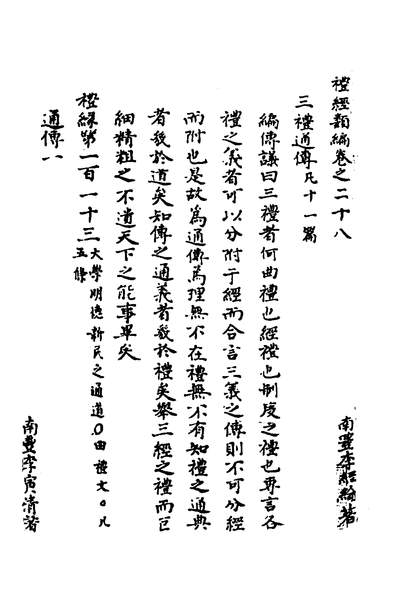 禮經類編卷之二十八
南豐李經綸著
三禮通傳凡十一篇
編傳議曰三禮者何曲禮也經禮也制度之禮也專言各
禮之義者可以分附于經而合言三義之傳則不可分經
而附也是故為通傳焉理無不在禮無不有知禮之通典
者幾於道矣知傳之通義者幾於禮矣舉三經之禮而巨
細精粗之不遺天下之能事畢矣
禮第一百一十三
大學明德新民之通道○曲禮文○凡
五條
通傳一
南豐李寅清著